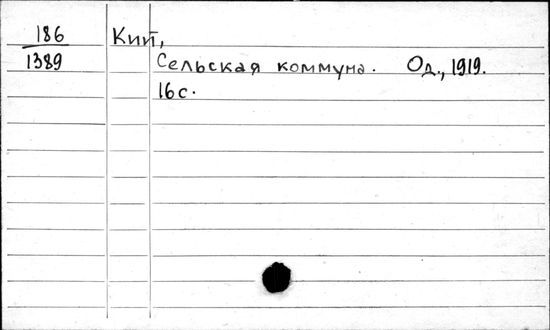 186
1389
Кий,
Сельская коммуна. Од., 1919.
16 с.